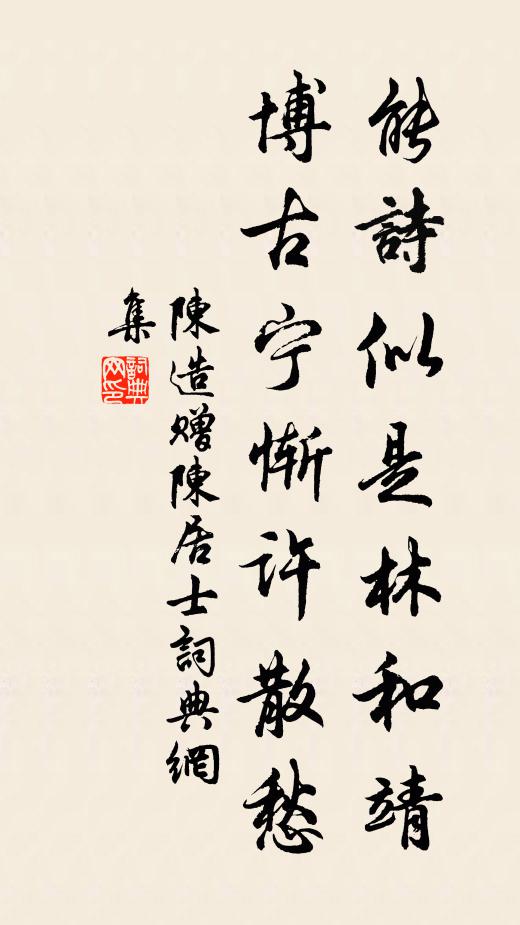 能詩似是林和靖
博古宁惭许散愁
陳造赠陳居士詞典網
集
詞典
网印